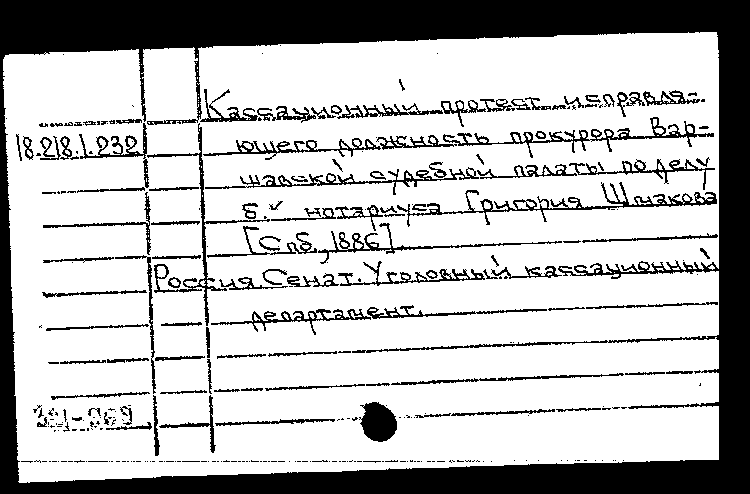 Кассационный протест исправля-
18.218.1.232 ющего должность прокурора Вар-
шавской судебной палаты по делу
б. нотариуса Григория Шпакова
[Спб., 1886]
Россия. Сенат. Уголовный кассационный
департамент.